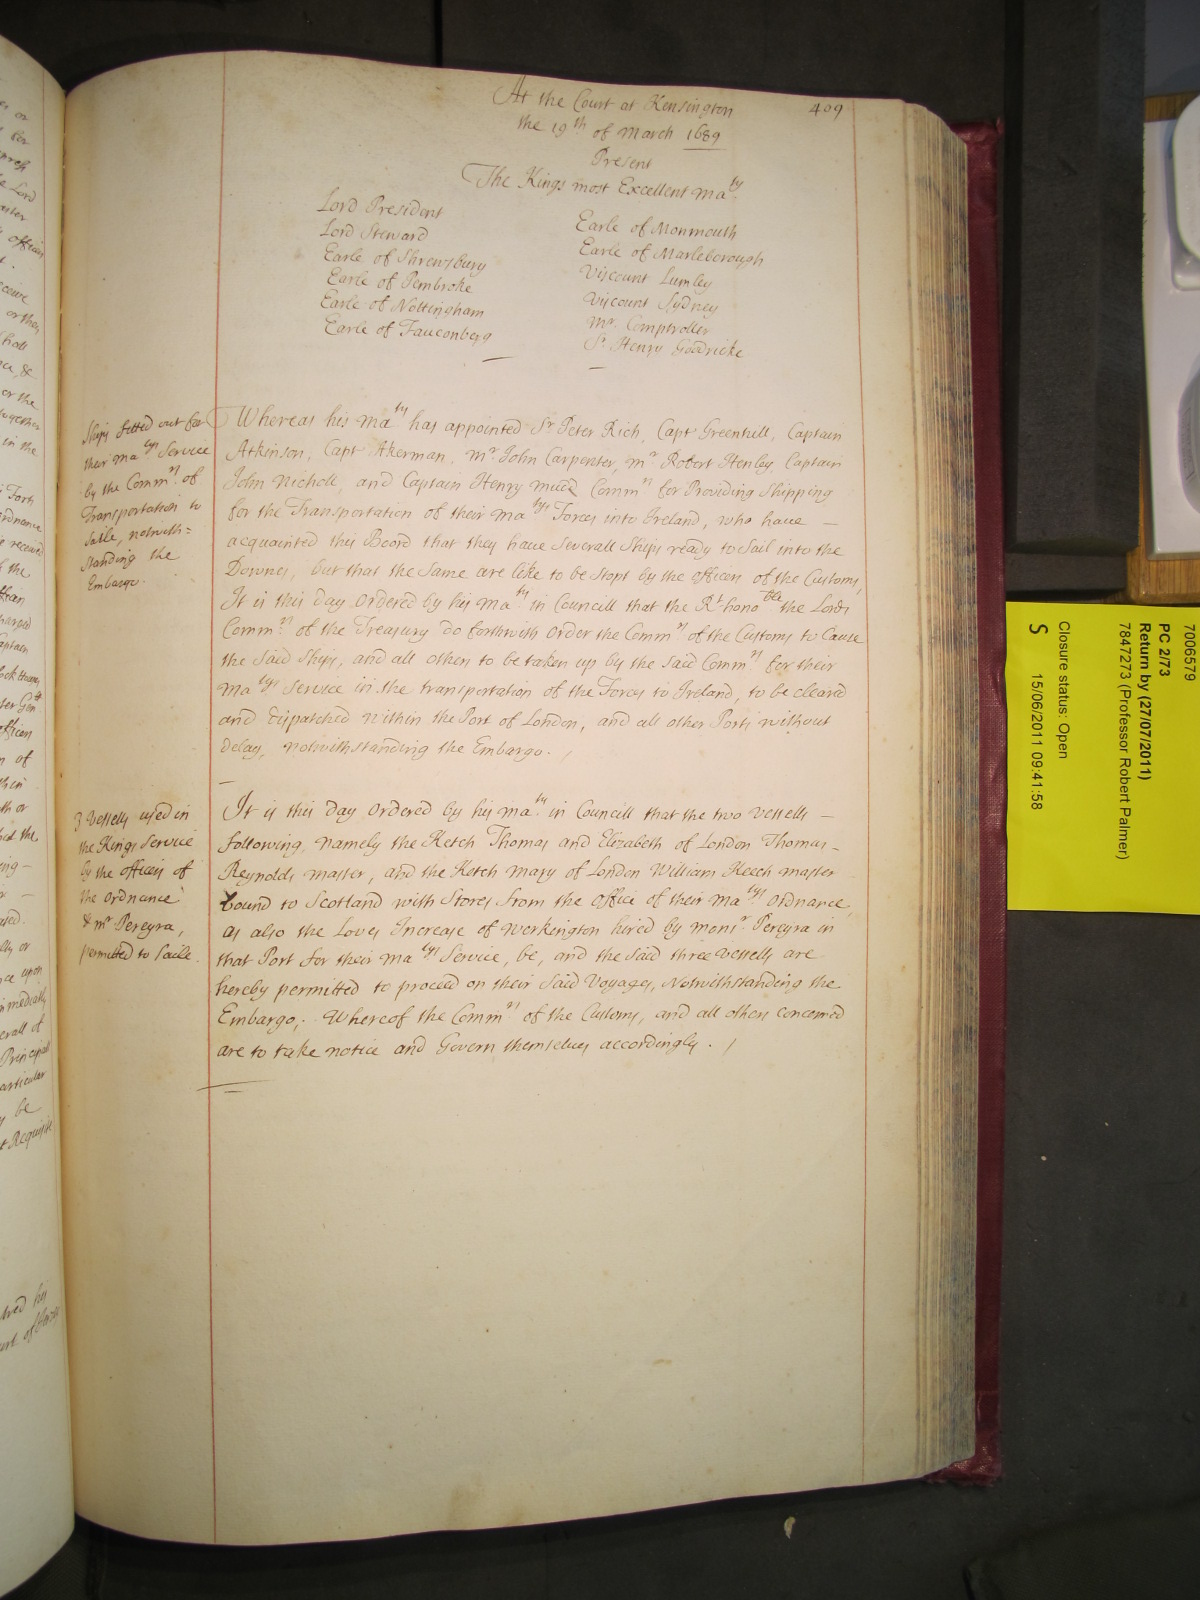 At the Court at Kensington
409
the 19th of March 1689
Present
The Kings most Excellent Maty.
Lord President
Lord Steward
Earle of Shrewsbury
Earle of Pembroke
Earle of Nottingham
Earle of Fauconberg
Earle of Monmouth
Earle of Marleborough
Viscount Lumley
Viscount Sydney
Mr. Comptroller
Sr. Henry Goodricke
Ships fitted out for
their Matys Service
by the Commrs of
Transportation to
saile, notwith=
standing the
Embargo.
Whereas his Maty has appointed Sr Peter Rich, Capt Greenhill, Captain
Atkinson, Capt Akerman, Mr John Carpenter, Mr Robert Henley, Captain
John Nicholl, and Captain Henry Comrs for Providing Shipping
for the Transportation of their Matys Forces into Ireland, who have —
acquainted this Board that they have Severall Ships ready to Sail into the
Downes, but that the Same are like to be Stopt by the officers of the Customs,
It is this day Ordered by his Maty in Councill that the Rt honoble the Lords
Commrs of the Treasury do forthwith Order the Commrs of the Customs to Cause
the Said Ships, and all others to be taken up by the Said Commrs for their
Matys Service in the transportation of the Forces to Ireland, to be cleared
and Dispatched within the Port of London, and all other Ports without
delay, notwithstanding the Embargo. /
3 Vessells used in
the Kings Service
by the officers of
the Ordnance
& Mr Pereyra,
permitted to Saile.
It is this day Ordered by his Maty in Councill that the two Vessells —
following, namely the Ketch Thomas and Elizabeth of London Thomas —
Reynolds Master, and the Ketch Mary of London William Keech Master
bound to Scotland with Stores from the Office of their Matys Ordnance,
as also the Loves Increase of Workington hired by Monsr Pereyra in
that Port for their Matys Service, be, and the Said three Vessells are
hereby permitted to proceed on their Said Voyages, Notwithstanding the
Embargo; Whereof the Commrs of the Customs, and all others concerned
are to take notice and Govern themselves accordingly. /
7006579
PC 2/73
Return by (27/07/2011)
7847273 (Professor Robert Palmer)
Closure status: Open
S 15/06/2011 09:41:58